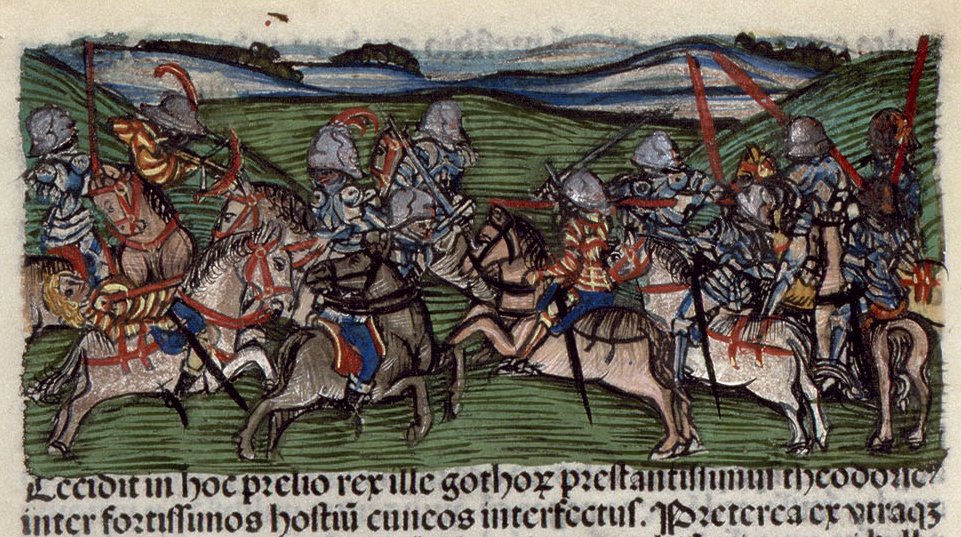 Cecidit in hoc prelio rex ille gothoꝝ prestantissimus theodoric⁹
inter fortissimos hostiū cuneos interfectus. Preterea ex vtraqꝫ